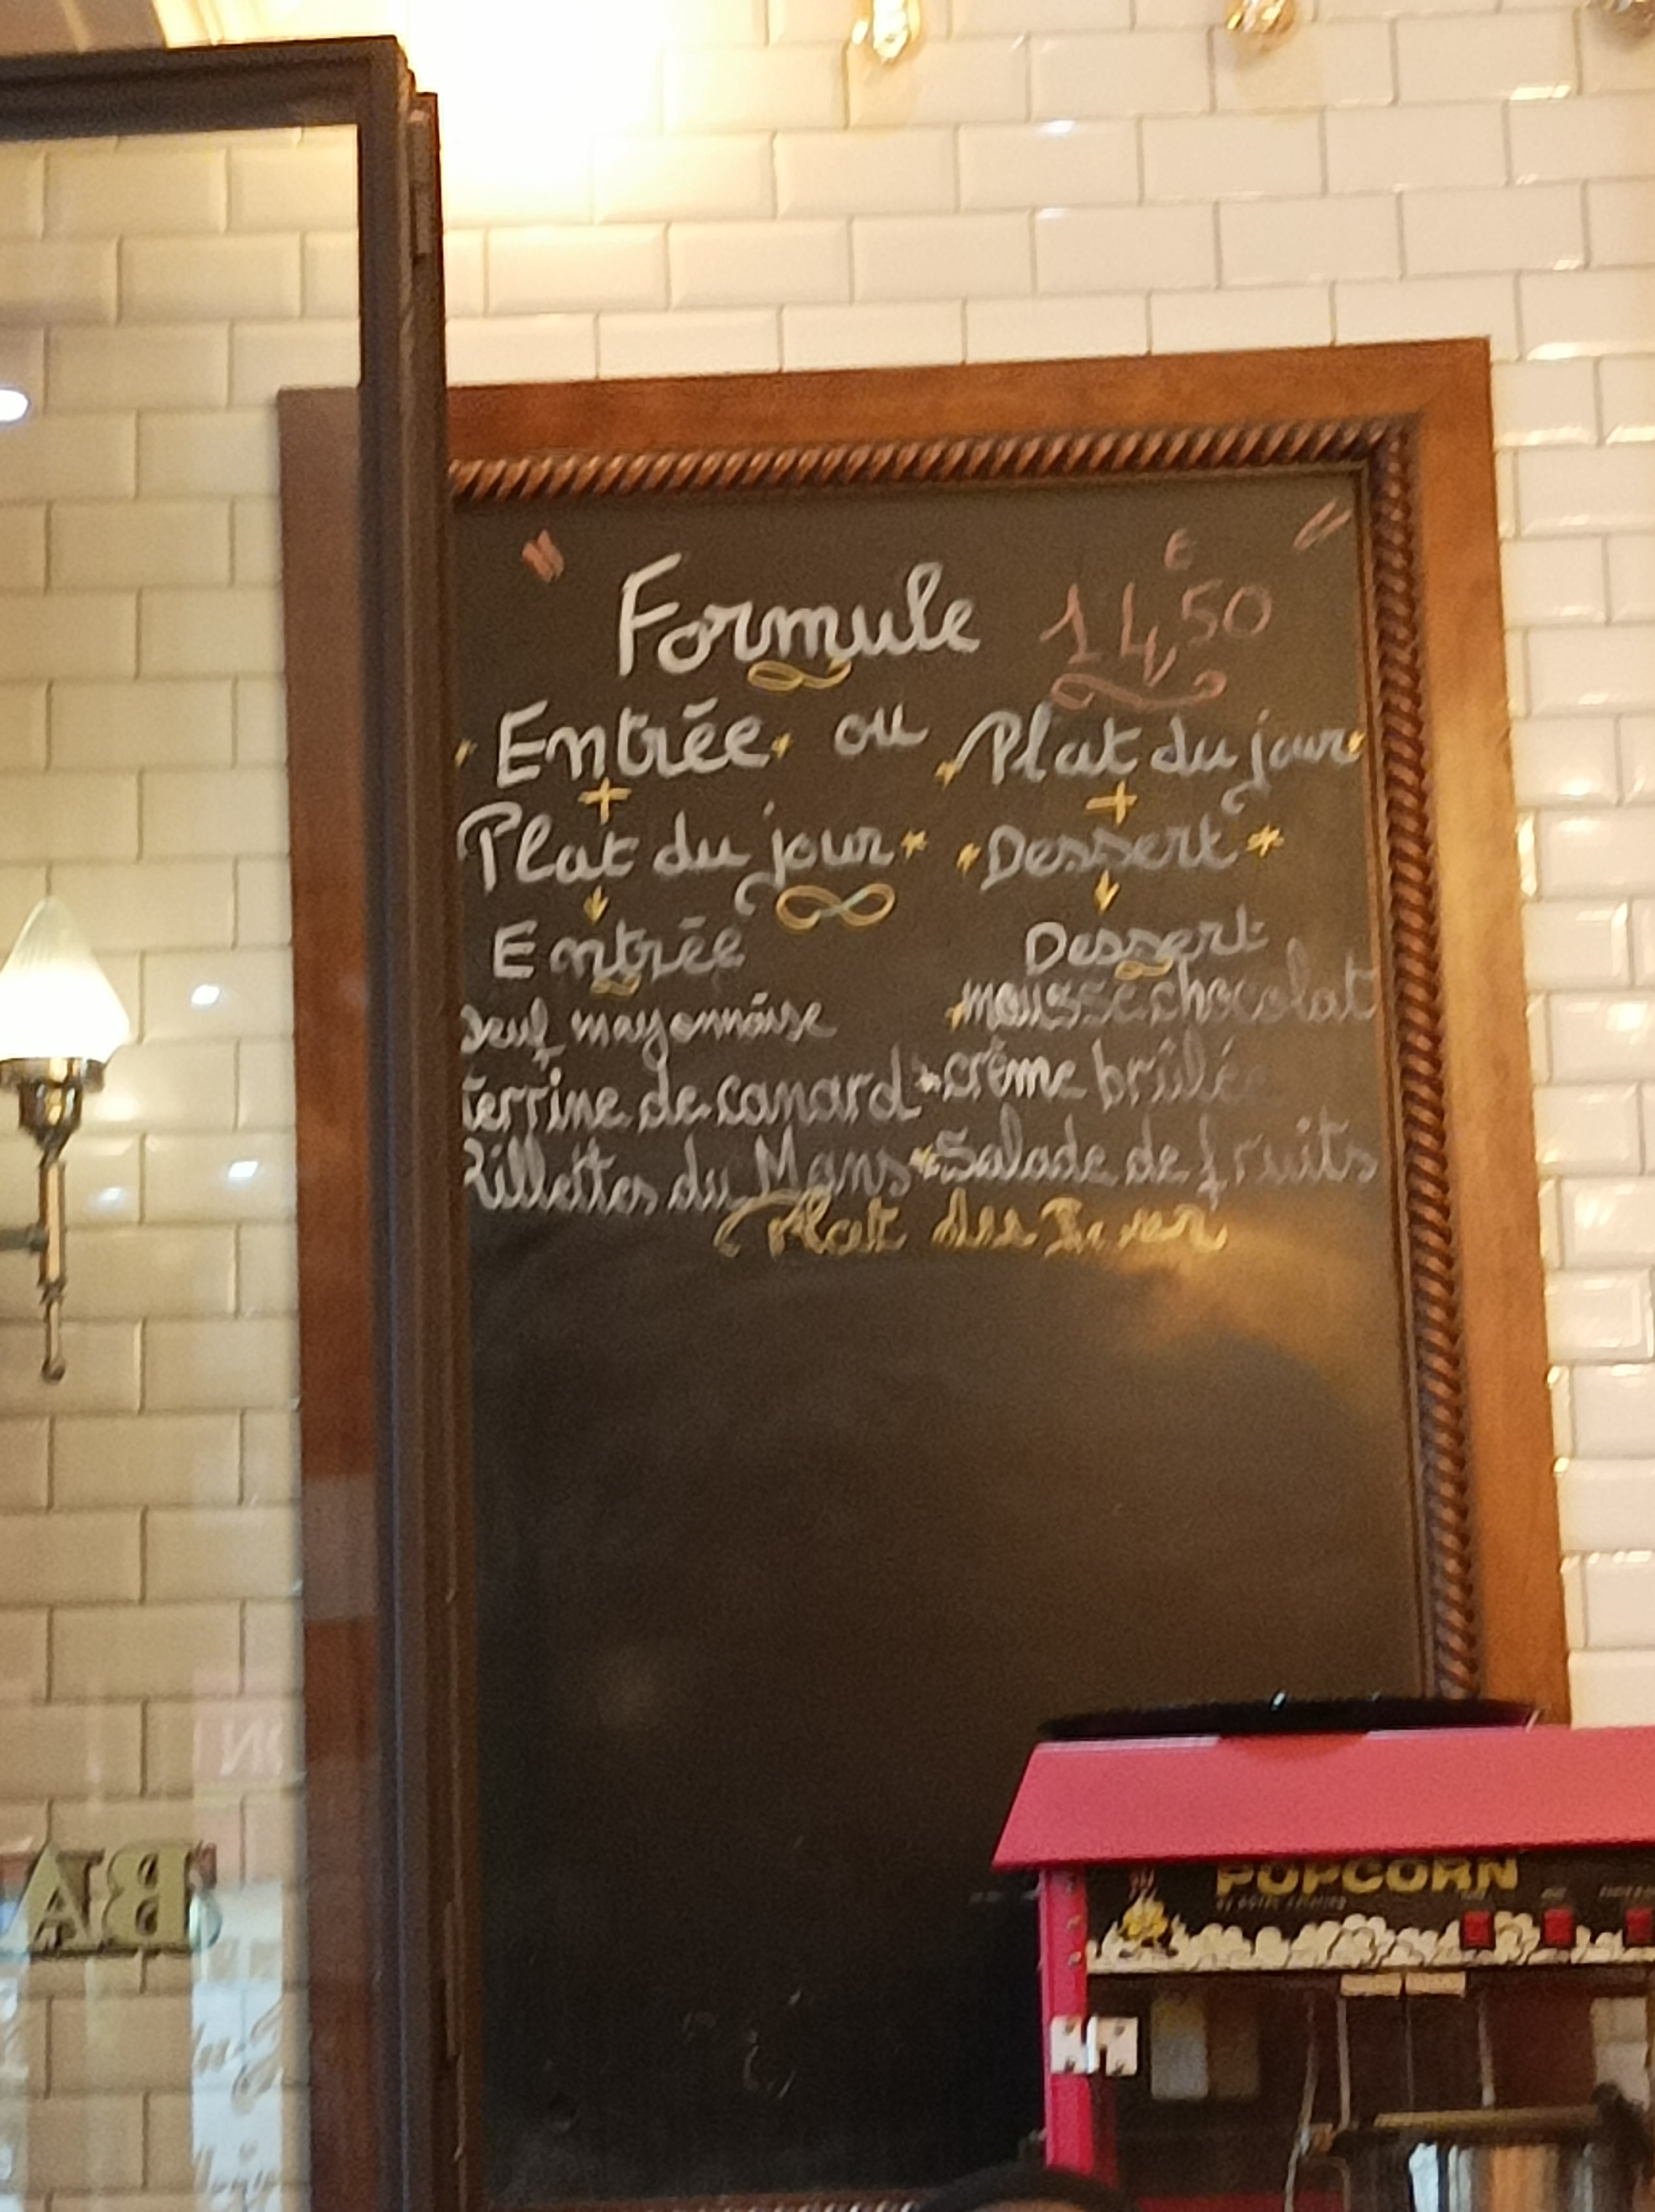 Formule 14,50
€
Entrée ou Plat du jour
+ +
Plat du jour * Dessert *
Entrée Dessert
oeuf mayonnaise mousse chocolat
terrine de canard crème brûlée
Rillettes du Mans Salade de fruits
Plat
POPCORN
BA